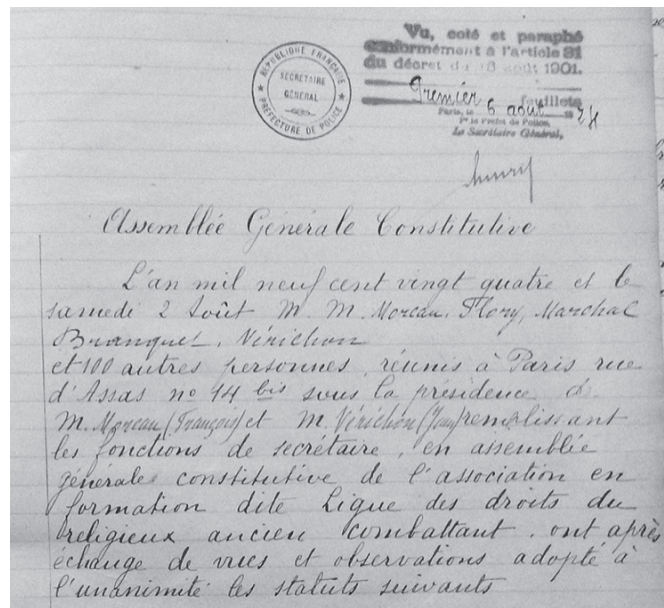 Vu, coté et paraphé
conformément à l'article 31
du décret du 16 août 1901.
Premier feuillets
Paris, le 6 août 1924
Pr le Préfet de Police,
Le Secrétaire Général,
RÉPUBLIQUE FRANÇAISE
SECRÉTAIRE
GÉNÉRAL
PRÉFECTURE DE POLICE
Assemblée Générale Constitutive
L'an mil neuf cent vingt quatre et le
samedi 2 Août M. M. Moreau, Flory, Marchal
Branquet, Vérichon
et 100 autres personnes, réunis à Paris rue
d'Assas no 14 bis sous la présidence de
M. Moreau (François) et M. Vérichon (Jean) remplissant
les fonctions de secrétaire, en assemblée
générale constitutive de l'association en
formation dite Ligue des droits du
religieux ancien combattant, ont après
échange de vues et observations adopté à
l'unanimité les statuts suivants